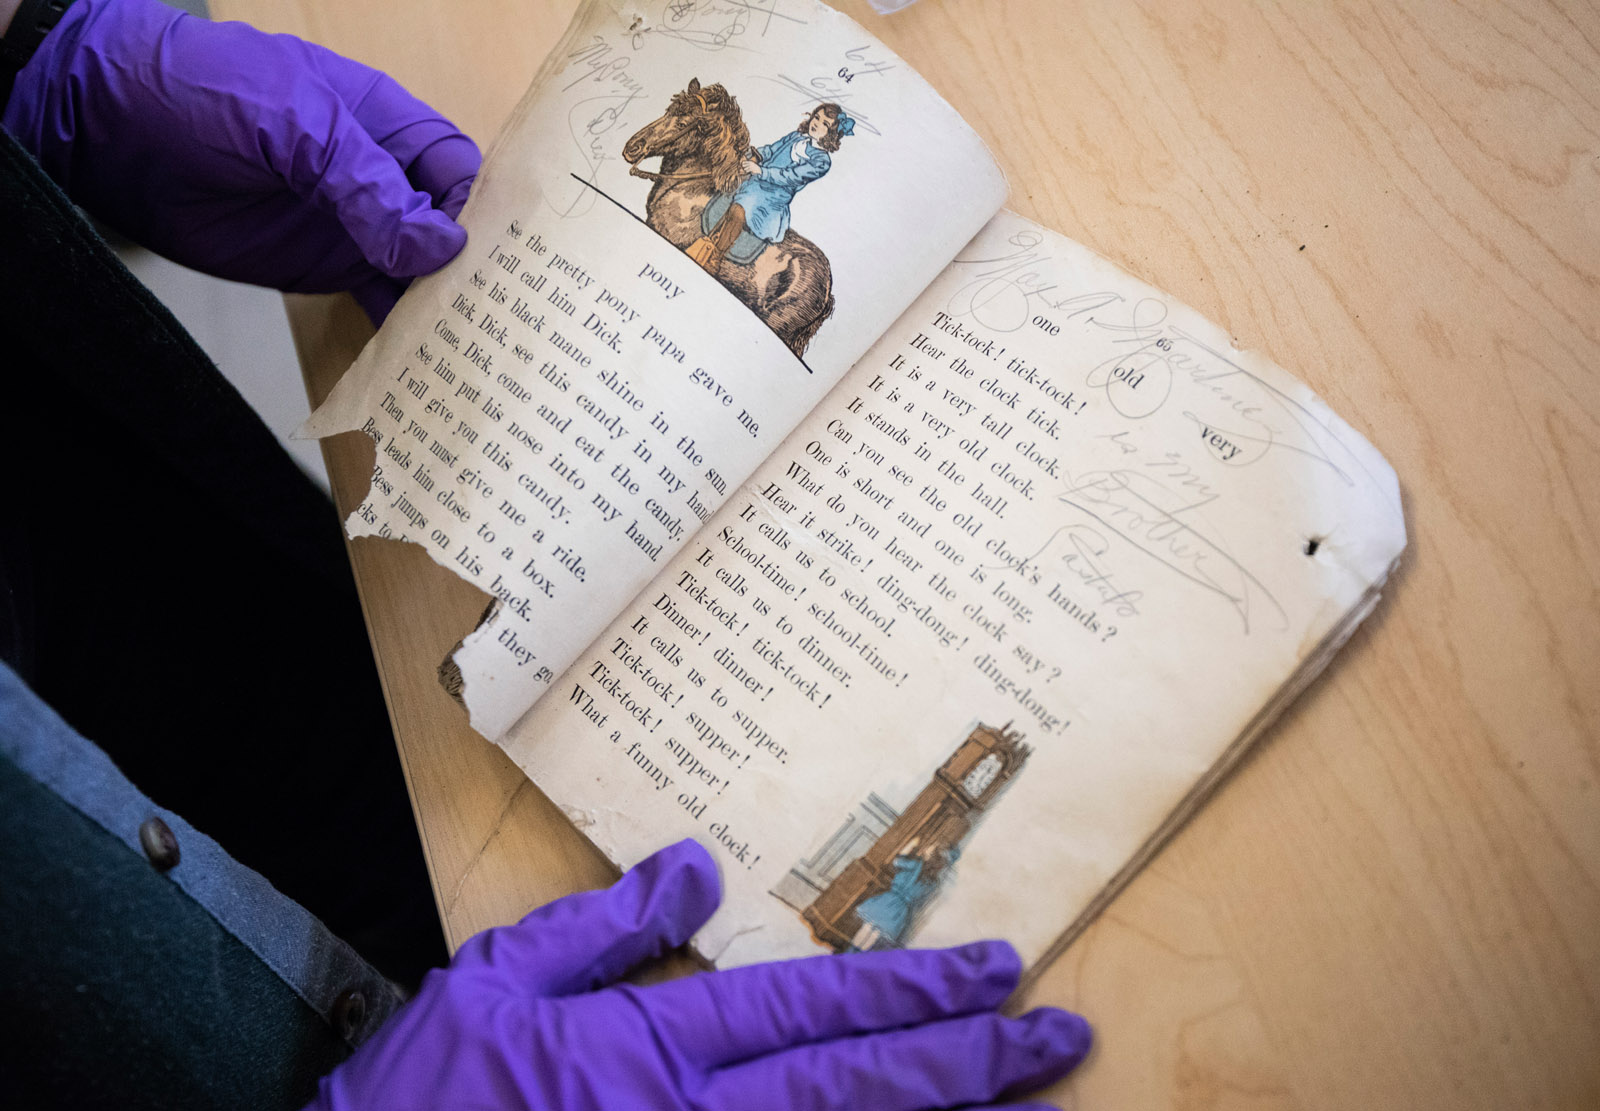 Pony
My Pony
64
64
64
pony
See the pretty pony papa gave me.
I will call him Dick.
See his black mane shine in the sun.
Dick, Dick, see this candy in my hand
Come, Dick, come and eat the candy.
See him put his nose into my hand.
I will give you this candy.
Then you must give me a ride.
Bess leads him close to a box.
Bess jumps on his back.
cks to
they go.
May A. Martinez
65
one
old
very
is my
Brother
Tick-tock! tick-tock!
Hear the clock tick.
It is a very tall clock.
It is a very old clock.
It stands in the hall.
Can you see the old clock's hands?
One is short and one is long.
What do you hear the clock say?
Hear it strike! ding-dong! ding-dong!
It calls us to school.
School-time! school-time!
It calls us to dinner.
Tick-tock! tick-tock!
Dinner! dinner!
It calls us to supper.
Tick-tock! supper!
Tick-tock! supper!
What a funny old clock!